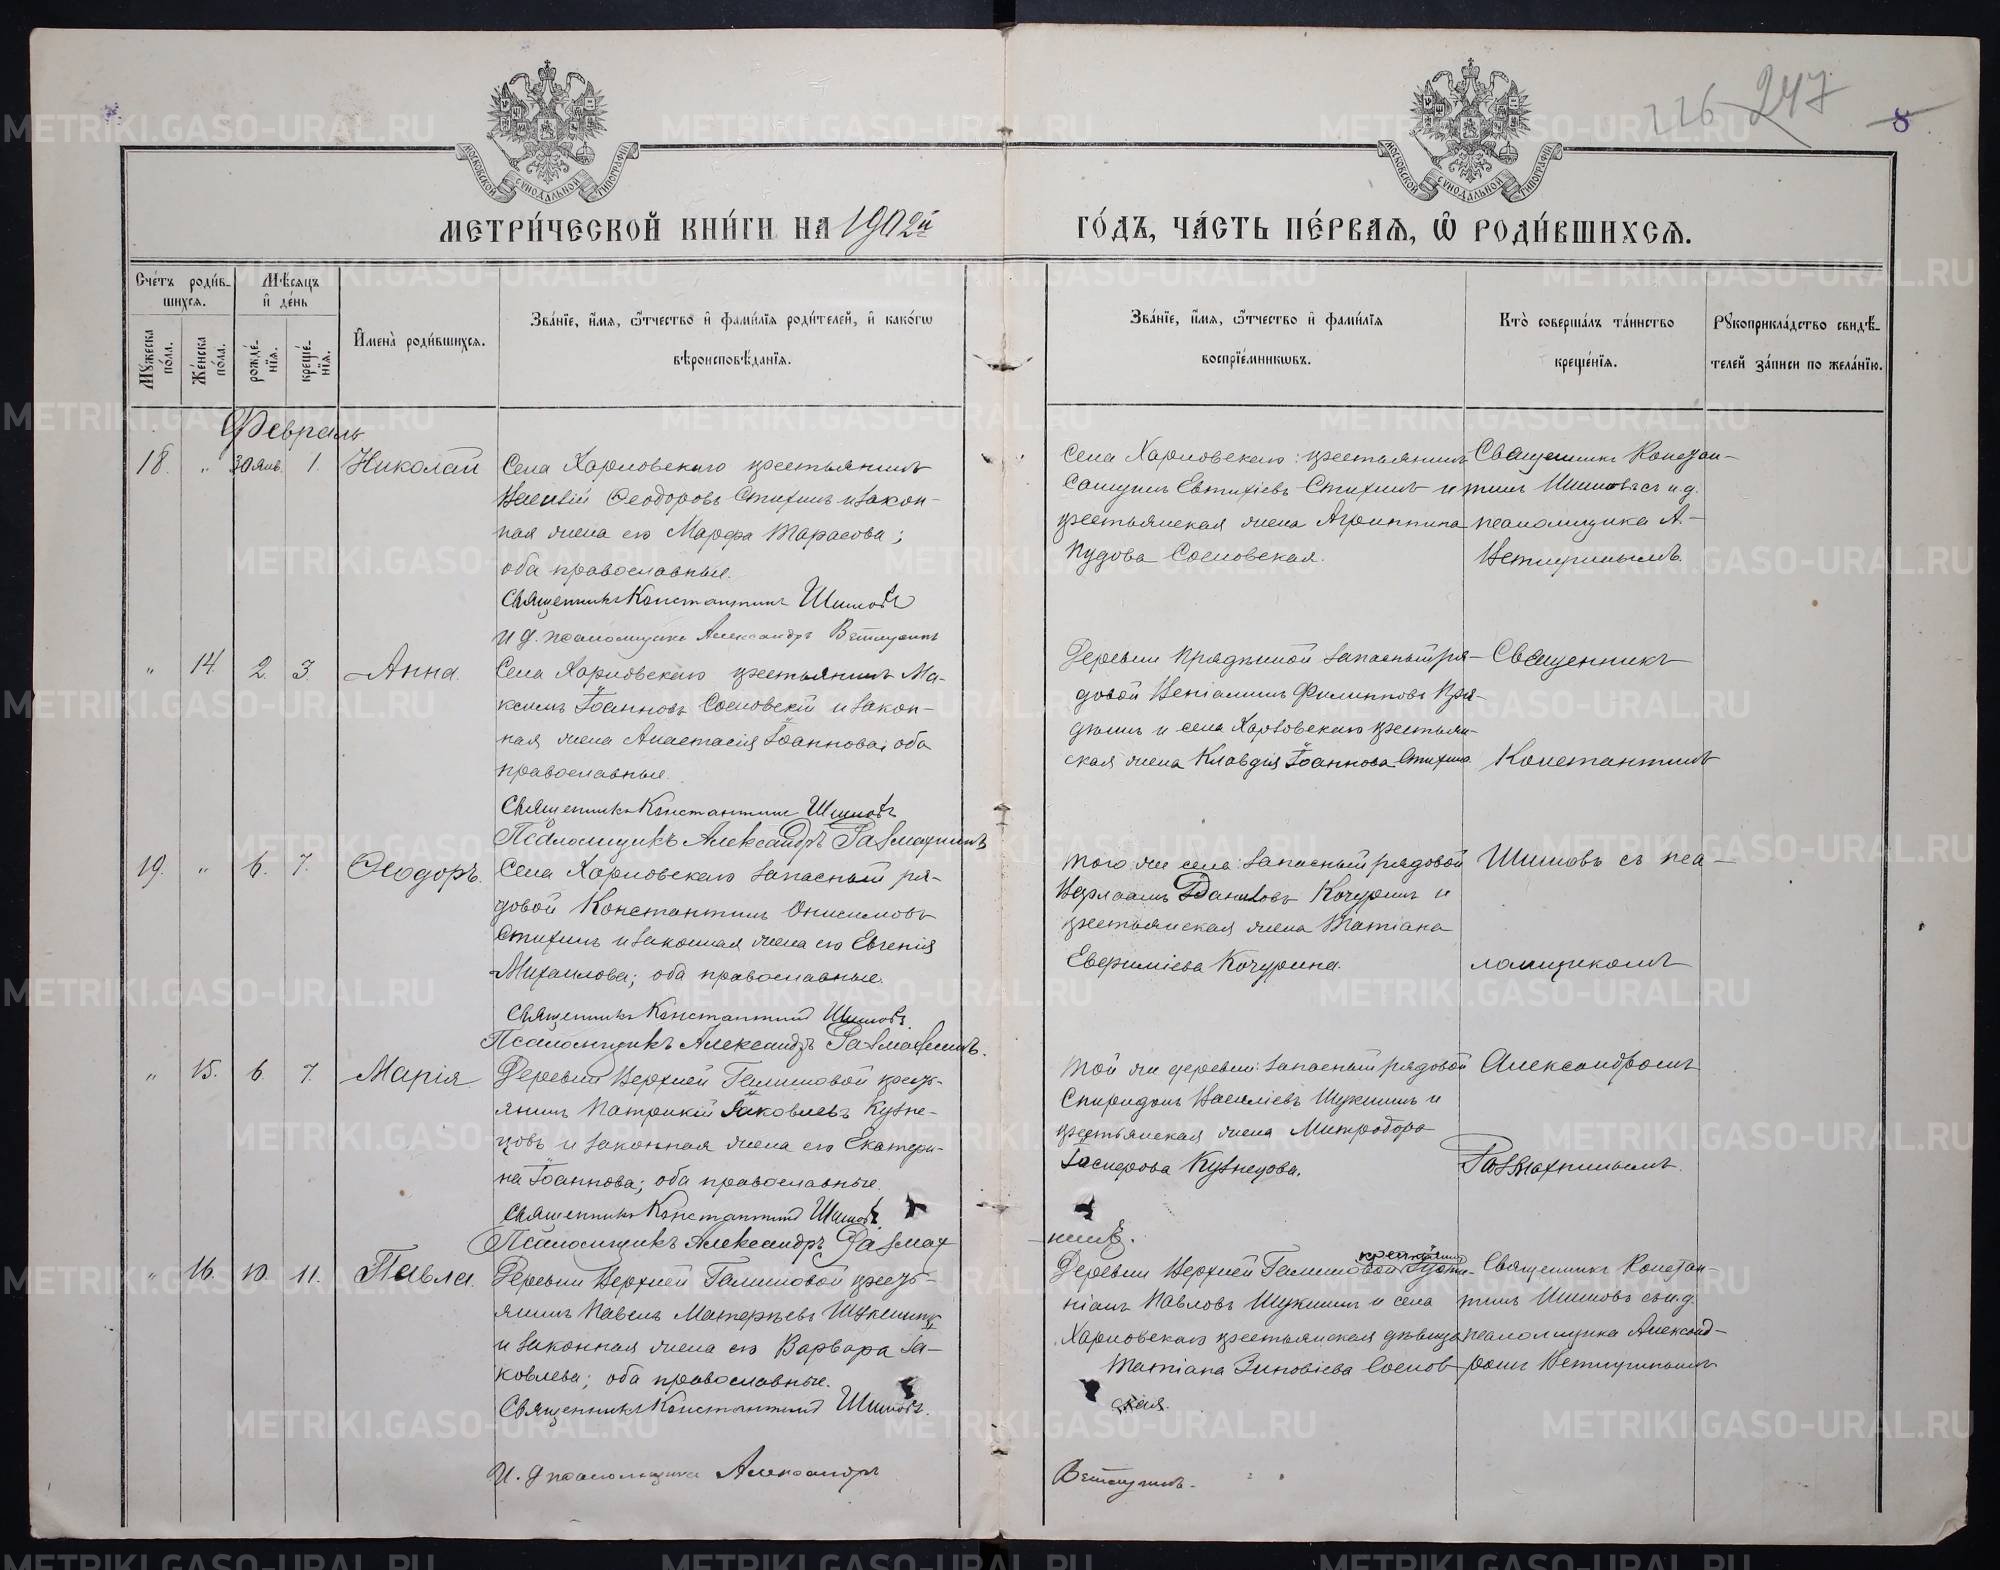 226 247
8
МОСКОВСКОЙ СѴНОДАЛЬНОЙ ТИПОГРАФІИ
МОСКОВСКОЙ СѴНОДАЛЬНОЙ ТИПОГРАФІИ
МЕТРИ́ЧЕСКОЙ КНИ́ГИ НА 1902й
ГО́ДЪ, ЧА́СТЬ ПЕ́РВАѦ, Ѡ҆ РОДИ́ВШИХСѦ.
Сче́тъ роди́в-
шихсѧ.
Мѣ́сѧцъ
и҆ де́нь
Мꙋ́жеска
по́ла.
Же́нска
по́ла.
рожде́-
нїѧ.
креще́-
нїѧ.
И҆мена̀ роди́вшихсѧ.
Зва́нїе, и҆́мѧ, ѻ҆́тчество и҆ фами́лїѧ роди́телей, и҆ како́гѡ
вѣроисповѣ́данїѧ.
Зва́нїе, и҆́мѧ, ѻ҆́тчество и҆ фами́лїѧ
воспрїе́мникѡвъ.
Кто̀ соверша́лъ та́инство
креще́нїѧ.
Рꙋкоприкла́дство свидѣ́-
телей за́писи по жела́нїю.
Февраль
18. " 30 янв. 1. Николай
Села Харловскаго крестьянинъ
Василій Ѳеодоровъ Стихинъ и закон-
ная жена его Марѳа Тарасова;
оба православные.
Священникъ Константинъ Шишовъ
И д. псаломщика Александръ Ветлугинъ
Села Харловскаго: крестьянинъ
Евтихіевъ Стихинъ и
крестьянская жена Агриппина
Пудова Сосновская.
Священникъ Констан-
тинъ Шишовъ съ и.д.
псаломщика А.
Ветлугинымъ.
" 14. 2. 3. Анна.
Села Харловскаго крестьянинъ Ма-
ксимъ Іоанновъ Сосновскій и закон-
ная жена Анастасія Іоаннова; оба
православные.
Священникъ Константинъ Шишовъ
Псаломщикъ Александръ Размахнинъ
Деревни Прядиной запасный ря-
довой Веніаминъ Филипповъ Пря-
динъ и села Харловскаго крестьян-
ская жена Клавдія Іоаннова Стихина
Священникъ
Константинъ
19. " 6. 7. Ѳеодоръ.
Села Харловскаго запасный ря-
довой Константинъ Онисимовъ
Стихинъ и законная жена его Евгенія
Михаилова; оба православные.
Священникъ Константинъ Шишовъ.
Псаломщикъ Александръ Размахнинъ.
Того же села: запасный рядовой
Варлаамъ Даниловъ Кочуринъ и
крестьянская жена Татіана
Евфиміева Кочурина.
Шишовъ съ пса-
ломщикомъ
" 15. 6. 7. Марія
Деревни Верхней Галишовой кресть-
янинъ Патрикій Іаковлевъ Кузне-
цовъ и законная жена его Екатери-
на Іоаннова; оба православные.
Священникъ Константинъ Шишовъ.
Псаломщикъ Александръ Размах
нинъ.
Той же деревни: запасный рядовой
Спиридонъ Васильевъ Шукшинъ и
крестьянская жена Митродора
Гасперова Кузнецова.
Александромъ
Размахнинымъ.
" 16. 10. 11. Павла.
Деревни Верхней Галишовой кресть-
янинъ Павелъ Матѳеевъ Шукшинъ
и законная жена его Варвара Іа-
ковлева; оба православные.
Священникъ Константинъ Шишовъ.
И. д псаломщика Александръ
Ветлугинъ.
Деревни Верхней Галишовой Іусти-
ніанъ Павловъ Шукшинъ и села
Харловскаго крестьянская дѣвица
Татіана Зиновіева Соснов
ская.
Священникъ Констан-
тинъ Шишовъ съ и.д.
псаломщика Александ-
ромъ Ветлугинымъ
METRIKI.GASO-URAL.RU